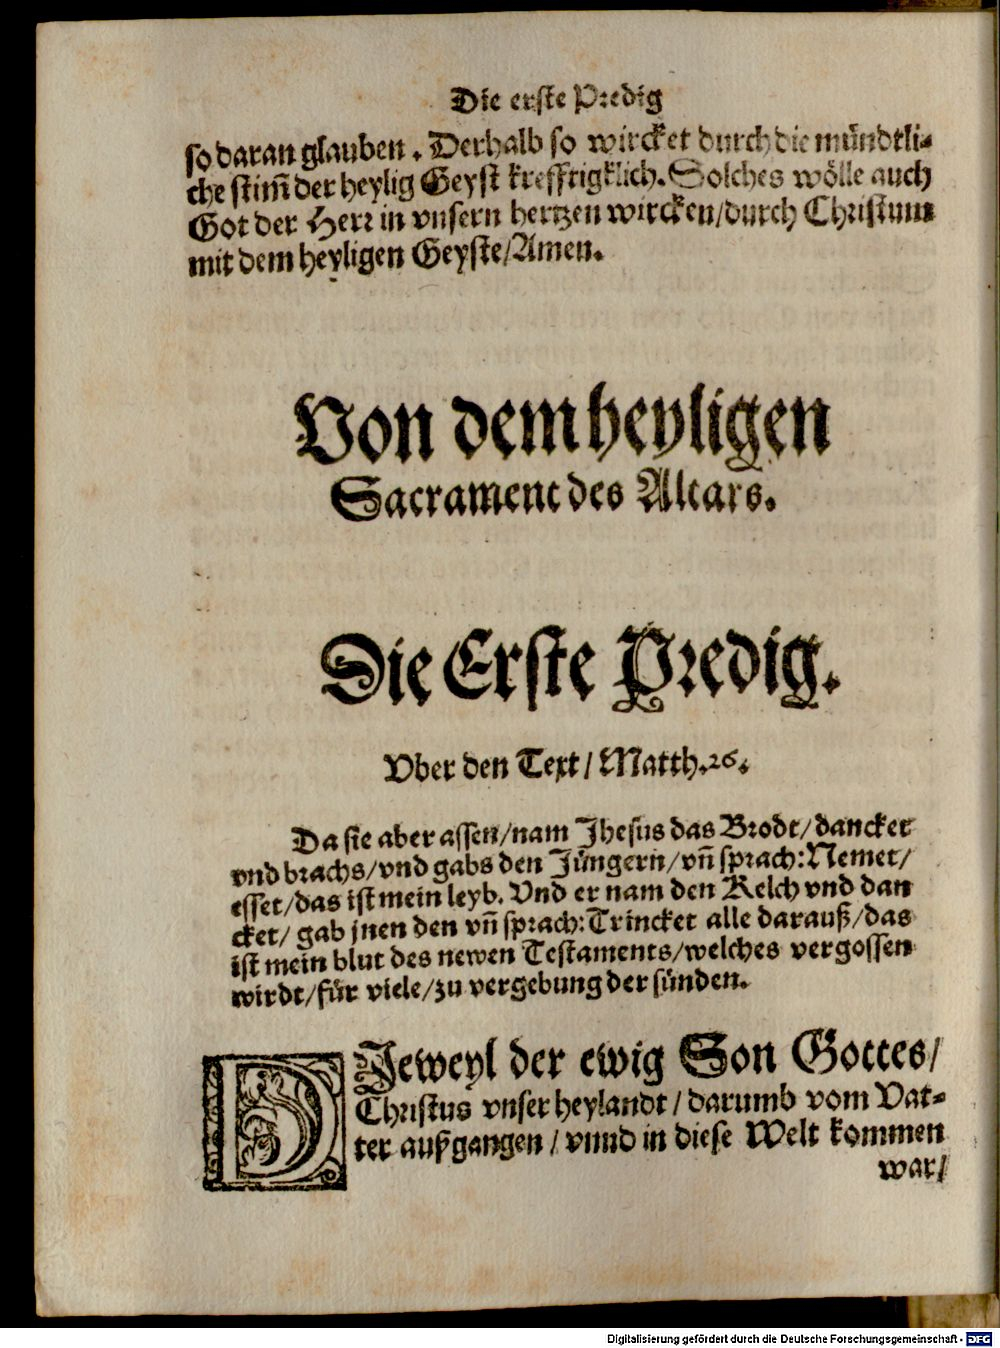 Die erste Predig
so daran glauben. Derhalb so wircket durch die mündtli-
che stim̃ der heylig Geyst krefftigklich. Solches wölle auch
Got der Herr in vnsern hertzen wircken/durch Christum
mit dem heyligen Geyste/Amen.
Von dem heyligen
Sacrament des Altars.
Die Erste Predig.
Vber den Text/Matth.26.
Da sie aber assen/nam Jhesus das Brodt/dancket
vnd brachs/vnd gabs den Jüngern/vñ sprach:Nemet/
esset/das ist mein leyb. Vnd er nam den Kelch vnd dan
cket/ gab jnen den vñ sprach:Trincket alle darauß/das
ist mein blut des newen Testaments/welches vergossen
wirdt/für viele/zu vergebung der sünden.
DJeweyl der ewig Son Gottes/
Christus vnser heylandt/darumb vom Vat-
ter außgangen/vnnd in diese Welt kommen
war/
Digitalisierung gefördert durch die Deutsche Forschungsgemeinschaft - DFG